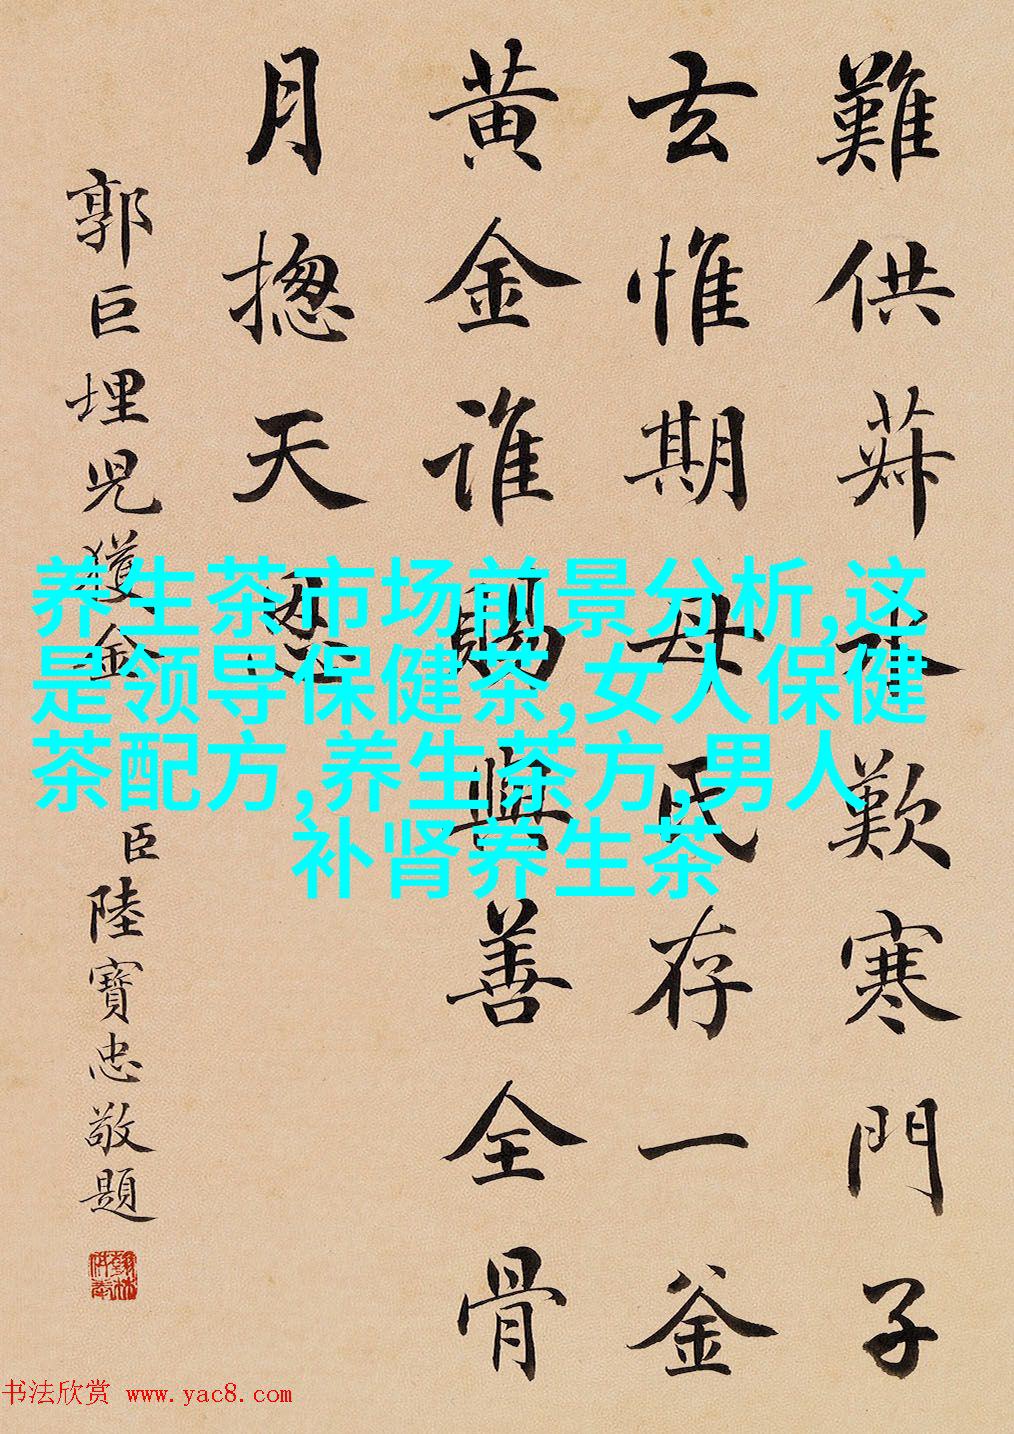 難供菽水歎寒門子
玄惟期母氏存一釜
黄金谁賜與善全骨
月揔天恩
郭巨埋児獲金
臣陸寶忠敬題
养生茶市场前景分析,这
是领导保健茶,女人保健
茶配方,养生茶方,男人
补肾养生茶
书法欣赏 www.yac8.com